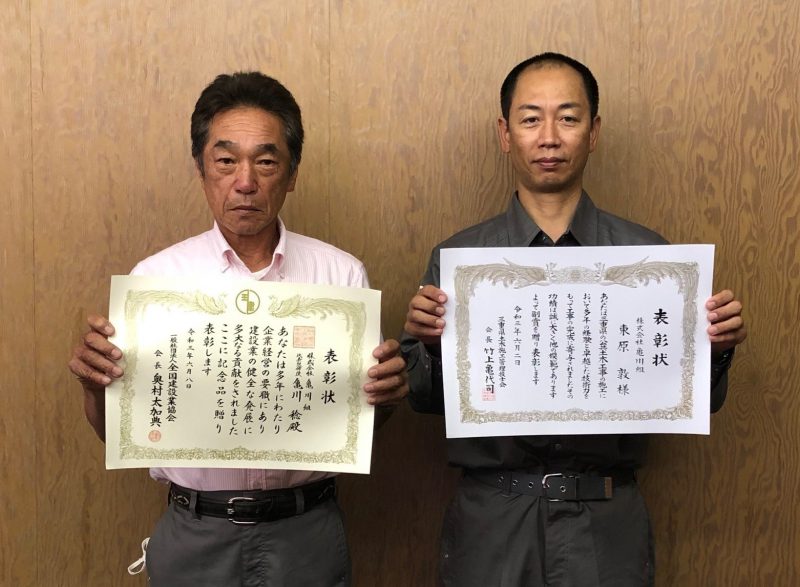 表彰状
株式会社 亀川組
代表取締役 亀川 稔殿
あなたは多年にわたり
企業経営の要職にあり
建設業の健全な発展に
多大なる貢献をされました
ここに記念品を贈り
表彰します
令和三年六月八日
一般社団法人全国建設業協会
会長 奥村太加典
表彰状
株式会社 亀川組
東原 敦様
あなたは三重県の公共土木工事の施工に
おいて多年の経験と卓越した技術力を
もって工事の完成に寄与されましたその
功績は誠に大きく他の模範であります
よって副賞を贈り表彰します
令和三年六月二日
三重県土木施工管理技士会
会長 竹上亀代司